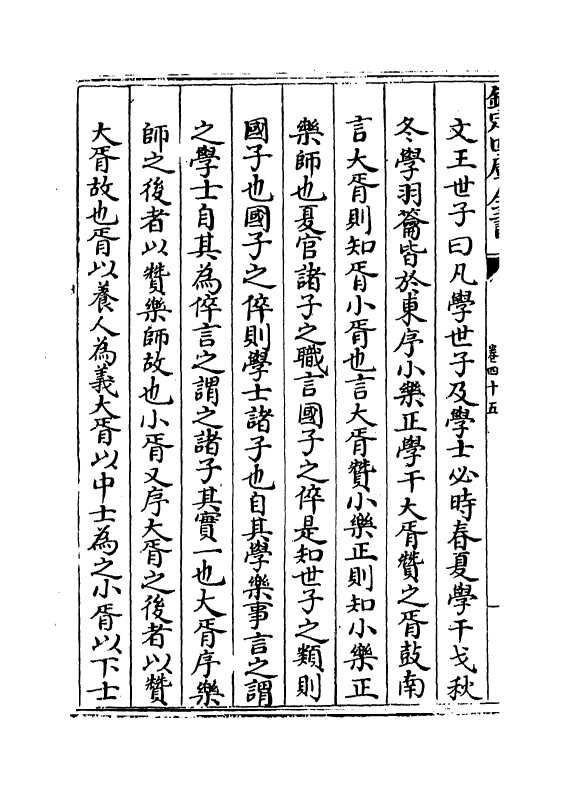 欽定四庫全書
卷四十五
文王世子曰凡學世子及學士必時春夏學干戈秋
冬學羽籥皆於東序小樂正學干大胥贊之胥鼓南
言大胥則知胥小胥也言大胥贊小樂正則知小樂正
樂師也夏官諸子之職言國子之倅是知世子之類則
國子也國子之倅則學士諸子也自其學樂事言之謂
之學士自其為倅言之謂之諸子其實一也大胥序樂
師之後者以贊樂師故也小胥又序大胥之後者以贊
大胥故也胥以養人為義大胥以中士為之小胥以下士